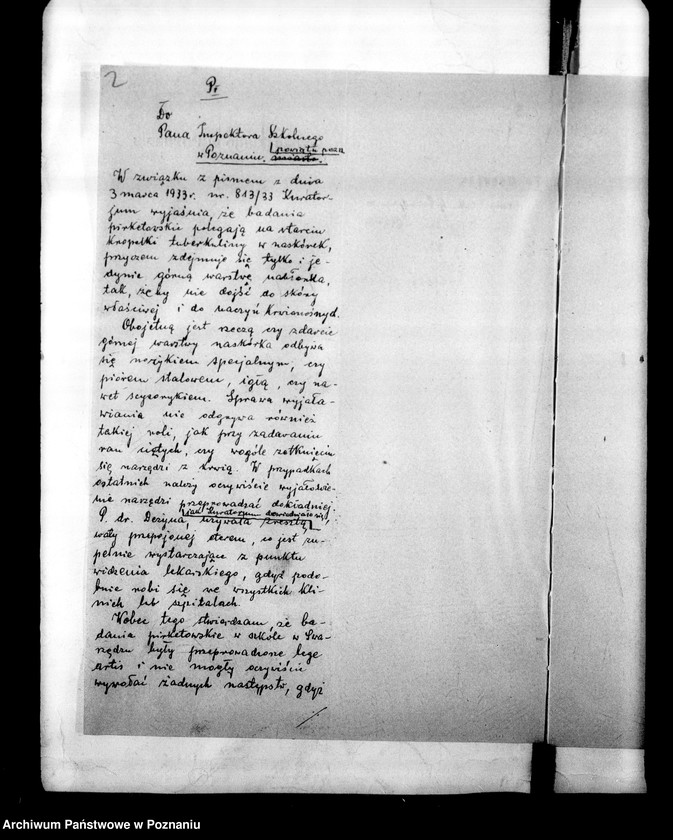 2
Pr.
Do
Pana Inspektora Szkolnego
powiatu pozn
w Poznaniu.
W związku z pismem z dnia
3 marca 1933 r. nr. 813/33 Kurator-
jum wyjaśnia, że badania
pirketowskie polegają na starciu
kropelki tuberkuliny w naskórek,
przyczem zdejmuje się tylko i je-
dynie górną warstwę nabłonka,
tak, żeby nie dojść do skóry
właściwej i do naczyń krwionośnych.
Obojętną jest rzeczą czy zdarcie
górnej warstwy naskórka odbywa
się nożykiem specjalnym, czy
piórem stalowem, igłą, czy na-
wet scyzorykiem. Sprawa wyjała-
wiania nie odgrywa również
takiej roli, jak przy zadawaniu
ran ciętych, czy wogóle zetknięciu
się narzędzi z krwią. W przypadkach
ostatnich należy oczywiście wyjałowie-
nie narzędzi przeprowadzać dokładniej.
jak Kuratorjum dowiaduje się,
P. dr. używała zresztą
waty przepojonej eterem, co jest zu-
pełnie wystarczające z punktu
widzenia lekarskiego, gdyż podo-
bnie robi się we wszystkich kli-
nich lub szpitalach.
Wobec tego stwierdzam, że ba-
dania pirketowskie w szkole w Swa-
rzędzu były przeprowadzone lege
artis i nie mogły oczywiście
wywołać żadnych następstw, gdyż
Archiwum Państwowe w Poznaniu